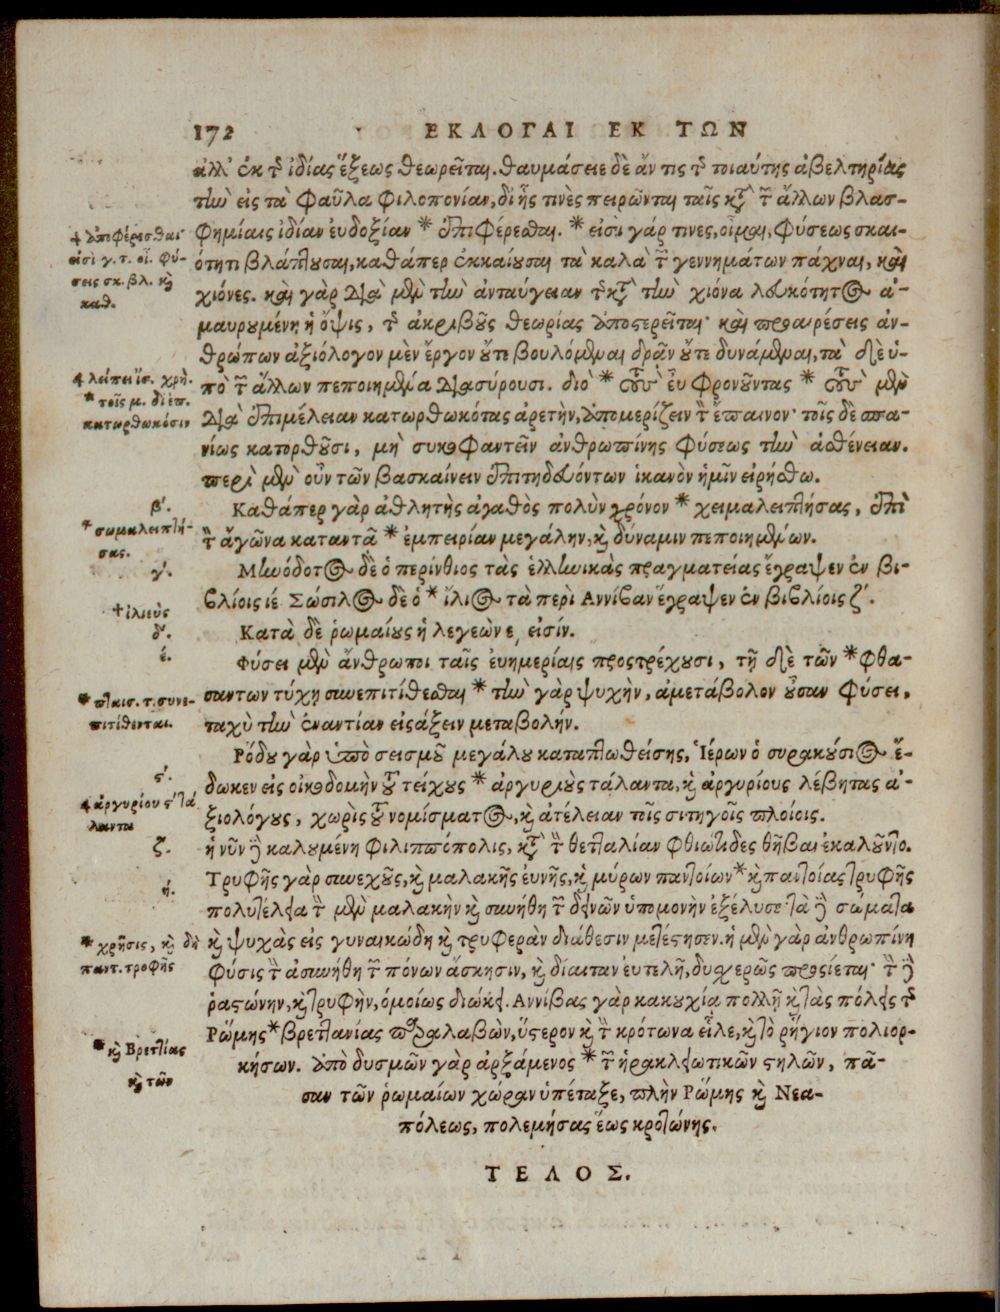 172 ΕΚΛΟΓΑΙ ΕΚ ΤΩΝ
ἀλλ' ἐκ τῆς ἰδίας ἕξεως θεωρεῖται. θαυμάσειε δὲ ἄν τις τῆς τοιαύτης ἀβελτηρίας
τὴν εἰς τὰ φαῦλα φιλοπονίαν, δι' ἧς τινὲς πειρῶνται ταῖς κατὰ τῶν ἄλλων βλασ-
φημίαις ἰδίαν εὐδοξίαν * ἐπιφέρεσθαι. * εἰσὶ γάρ τινες, οἶμαι, φύσεως σκαι-
ότητι βλάπτουσαι, καθάπερ ἐκκαίουσαι τὰ καλὰ τῶν γεννημάτων πάχναι, καὶ
χιόνες. καὶ γὰρ διὰ μὲν τὴν ἀνταύγειαν τῆς κατὰ τὴν χιόνα λευκότητος ἀ-
μαυρουμένη ἡ ὄψις, τῆς ἀκριβοῦς θεωρίας ἀποστερεῖται· καὶ προαιρέσεις ἀν-
θρώπων ἀξιόλογον μὲν ἔργον οὔτι βουλόμεναι δρᾶν οὔτι δυνάμεναι, τὰ δὲ ὑ-
πὸ τῶν ἄλλων πεποιημένα διασύρουσι. διὸ * τοὺς εὖ φρονοῦντας * τοὺς μὲν
διὰ ἐπιμέλειαν κατωρθωκότας ἀρετὴν, ἀπομερίζειν τὸν ἔπαινον· τοῖς δὲ σπα-
νίως κατορθοῦσι, μὴ συκοφαντεῖν ἀνθρωπίνης φύσεως τὴν ἀσθένειαν.
περὶ μὲν οὖν τῶν βασκαίνειν ἐπιτηδευόντων ἱκανὸν ἡμῖν εἰρήσθω.
Καθάπερ γὰρ ἀθλητὴς ἀγαθὸς πολὺν χρόνον * χειμαλειπτήσας, ἐπὶ
τὸν ἀγῶνα καταντᾶ * ἐμπειρίαν μεγάλην, καὶ δύναμιν πεποιημένων.
Μηνόδοτος δὲ ὁ περίνθιος τὰς ἑλληνικὰς πραγματείας ἔγραψεν ἐν βι-
βλίοις ιέ Σώσιλος δὲ ὁ * ἴλιος τὰ περὶ Αννίβαν ἔγραψεν ἐν βιβλίοις ζ'.
Κατὰ δὲ ῥωμαίους ἡ λεγεὼν ε, εἰσίν.
Φύσει μὲν ἄνθρωποι ταῖς εὐημερίαις προστρέχουσι, τῇ δὲ τῶν * φθα-
σαντων τύχῃ συνεπιτίθεσθαι * τὴν γὰρ ψυχὴν, ἀμετάβολον οὖσαν φύσει,
ταχὺ τὴν ἐναντίαν εἰσάξειν μεταβολήν.
Ρόδου γὰρ ὑπὸ σεισμοῦ μεγάλου καταπτωθείσης, Ἱέρων ὁ συρακούσιος ἔ-
δωκεν εἰς οἰκοδομὴν τοῦ τείχους * ἀργυρίους τάλαντα, καὶ ἀργυρίους λέβητας ἀ-
ξιολόγους, χωρὶς τοῦ νομίσματος, καὶ ἀτέλειαν τοῖς σιτηγοῖς πλοίοις.
ἡ νῦν δὲ καλουμένη φιλιππόπολις, κατὰ τὴν θετταλίαν φθιώτιδες θῆβαι ἐκαλοῦντο.
Τρυφῆς γὰρ συνεχοῦς, καὶ μαλακῆς εὐνῆς, καὶ μύρων παντοίων * καὶ παντοίας τρυφῆς
πολυτέλεια τὴν μὲν μαλακὴν καὶ συνήθη τῶν δεινῶν ὑπομονὴν ἐξέλυσε τὰ δὲ σώματα
καὶ ψυχὰς εἰς γυναικώδη καὶ τρυφερὰν διάθεσιν μετέστησεν. ἡ μὲν γὰρ ἀνθρωπίνη
φύσις τὴν ἀσυνήθη τῶν πόνων ἄσκησιν, καὶ δίαιταν εὐτελῆ, δυσχερῶς προσίεται· τὴν δὲ
ῥαστώνην, καὶ τρυφὴν, ὁμοίως διώκει. Αννίβας γὰρ κακουχία πολλῇ καὶ τὰς πόλεις τῆς
Ρώμης * βρεττανίας παραλαβὼν, ὕστερον καὶ τὴν κρότωνα εἷλε, καὶ τὸ ρήγιον πολιορ-
κήσων. ἀπὸ δυσμῶν γὰρ ἀρξάμενος * τῶν ἡρακλεωτικῶν στηλῶν, πᾶ-
σαν τῶν ῥωμαίων χώραν ὑπέταξε, πλὴν Ρώμης καὶ Νεα-
πόλεως, πολεμήσας ἕως κροτώνης.
ΤΕΛΟΣ.
ἀποφέρεσθαι
εἰσὶ γ. τ. οἱ. φύ-
σεις σκ. βλ. καὶ
καθ.
λείπει ἴσ. χρή.
* τοῖς μ. δι' ἐπ.
κατωρθωκόσιν
β'.
* σωμαλειπτή-
σας.
γ'.
† ἰλιεὺς
δ'.
έ.
* πταισ. τ. συνε-
πιτίθενται.
ς'.
ἀργυρίου ς' τά
λαντα
ζ'.
ή.
* χρῆσις, καὶ δὴ
παντ. τροφῆς
* καὶ Βρεττίας
καὶ τῶν